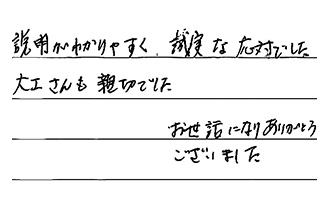 説明がわかりやすく、誠実な応対でした
大工さんも親切でした
お世話になりありがとう
ございました